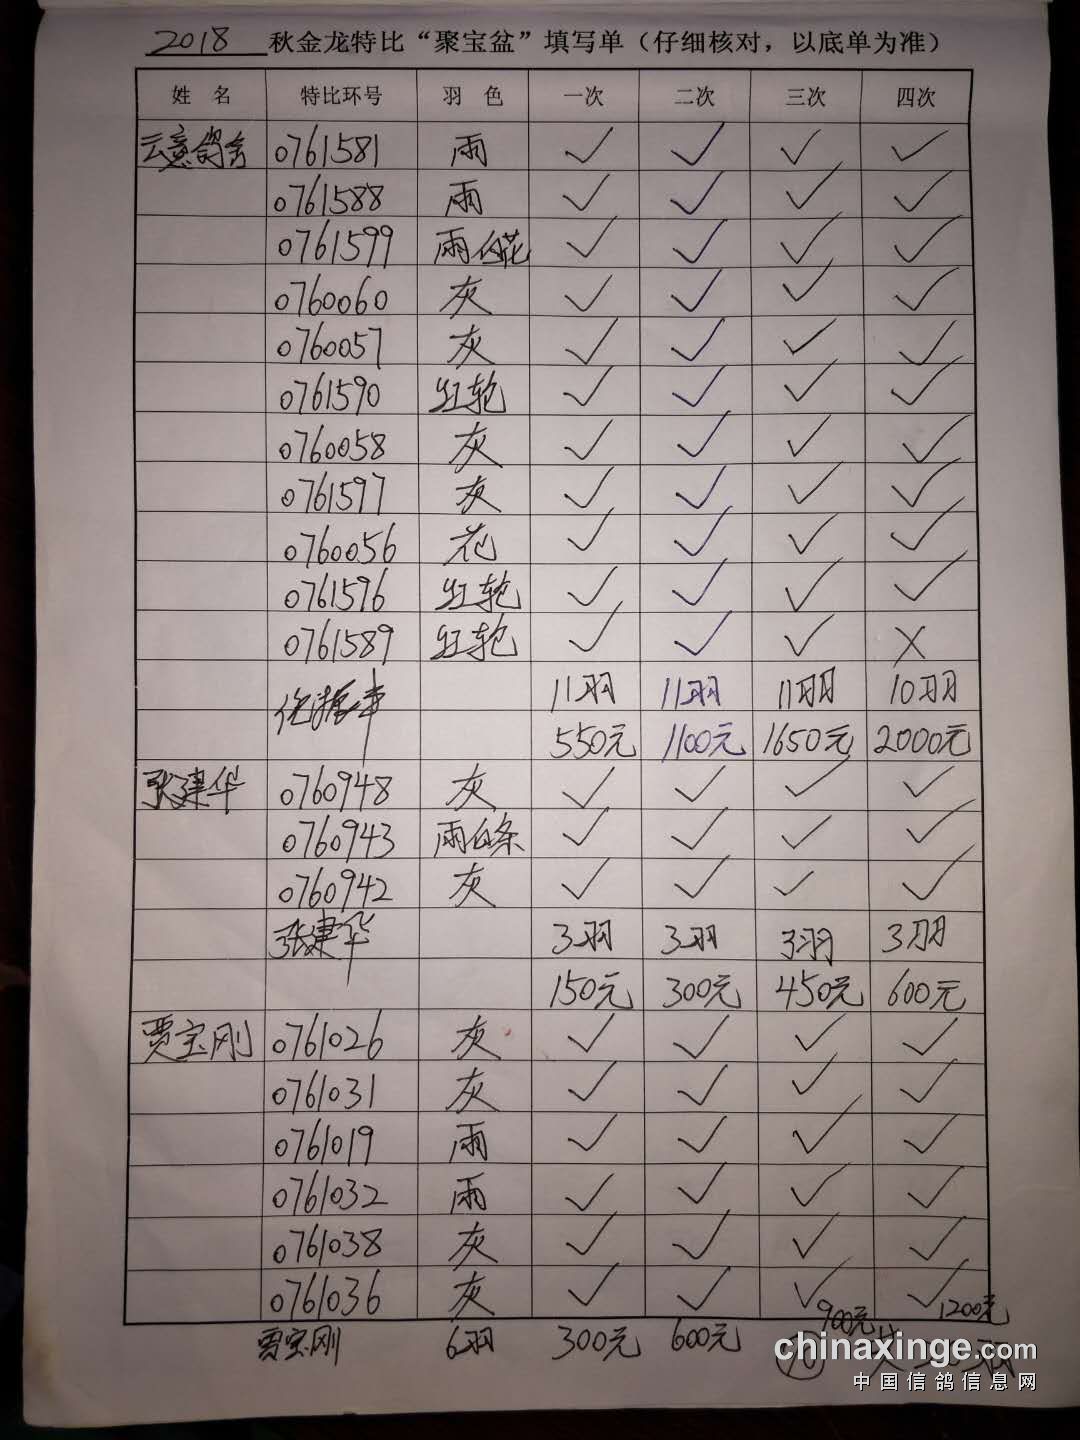 2018 秋金龙特比“聚宝盆”填写单（仔细核对，以底单为准）
姓 名 特比环号 羽 色 一次 二次 三次 四次
云意鸽舍 0761581 雨 ✓ ✓ ✓ ✓
0761588 雨 ✓ ✓ ✓ ✓
0761599 雨白花 ✓ ✓ ✓ ✓
0760060 灰 ✓ ✓ ✓ ✓
0760057 灰 ✓ ✓ ✓ ✓
0761590 红轮 ✓ ✓ ✓ ✓
0760058 灰 ✓ ✓ ✓ ✓
0761597 灰 ✓ ✓ ✓ ✓
0760056 花 ✓ ✓ ✓ ✓
0761596 红轮 ✓ ✓ ✓ ✓
0761589 红轮 ✓ ✓ ✓ X
11羽 11羽 11羽 10羽
550元 1100元 1650元 2000元
张建华 0760948 灰 ✓ ✓ ✓ ✓
0760943 雨白条 ✓ ✓ ✓ ✓
0760942 灰 ✓ ✓ ✓ ✓
张建华 3羽 3羽 3羽 3羽
150元 300元 450元 600元
贾宝刚 0761026 灰 ✓ ✓ ✓ ✓
0761031 灰 ✓ ✓ ✓ ✓
0761019 雨 ✓ ✓ ✓ ✓
0761032 雨 ✓ ✓ ✓ ✓
0761038 灰 ✓ ✓ ✓ ✓
0761036 灰 ✓ ✓ ✓ ✓
贾宝刚 6羽 300元 600元 900元 1200元
chinaxinge.com
中国信鸽信息网